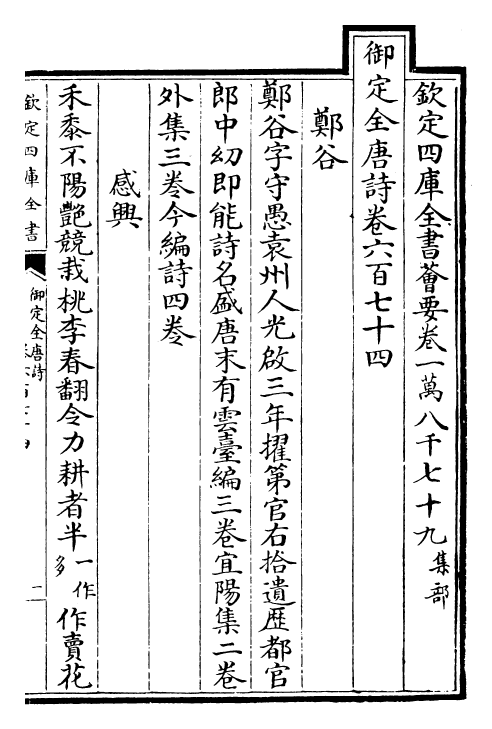 欽定四庫全書薈要卷一萬八千七十九 集部
御定全唐詩卷六百七十四
鄭谷
鄭谷字守愚袁州人光啟三年擢第官右拾遺歴都官
郎中㓜即能詩名盛唐末有雲臺編三卷宜陽集二卷
外集三卷今編詩四卷
感興
禾黍不陽艷競栽桃李春翻令力耕者半一作多作賣花
欽定四庫全書
御定全唐詩
卷六百七十四